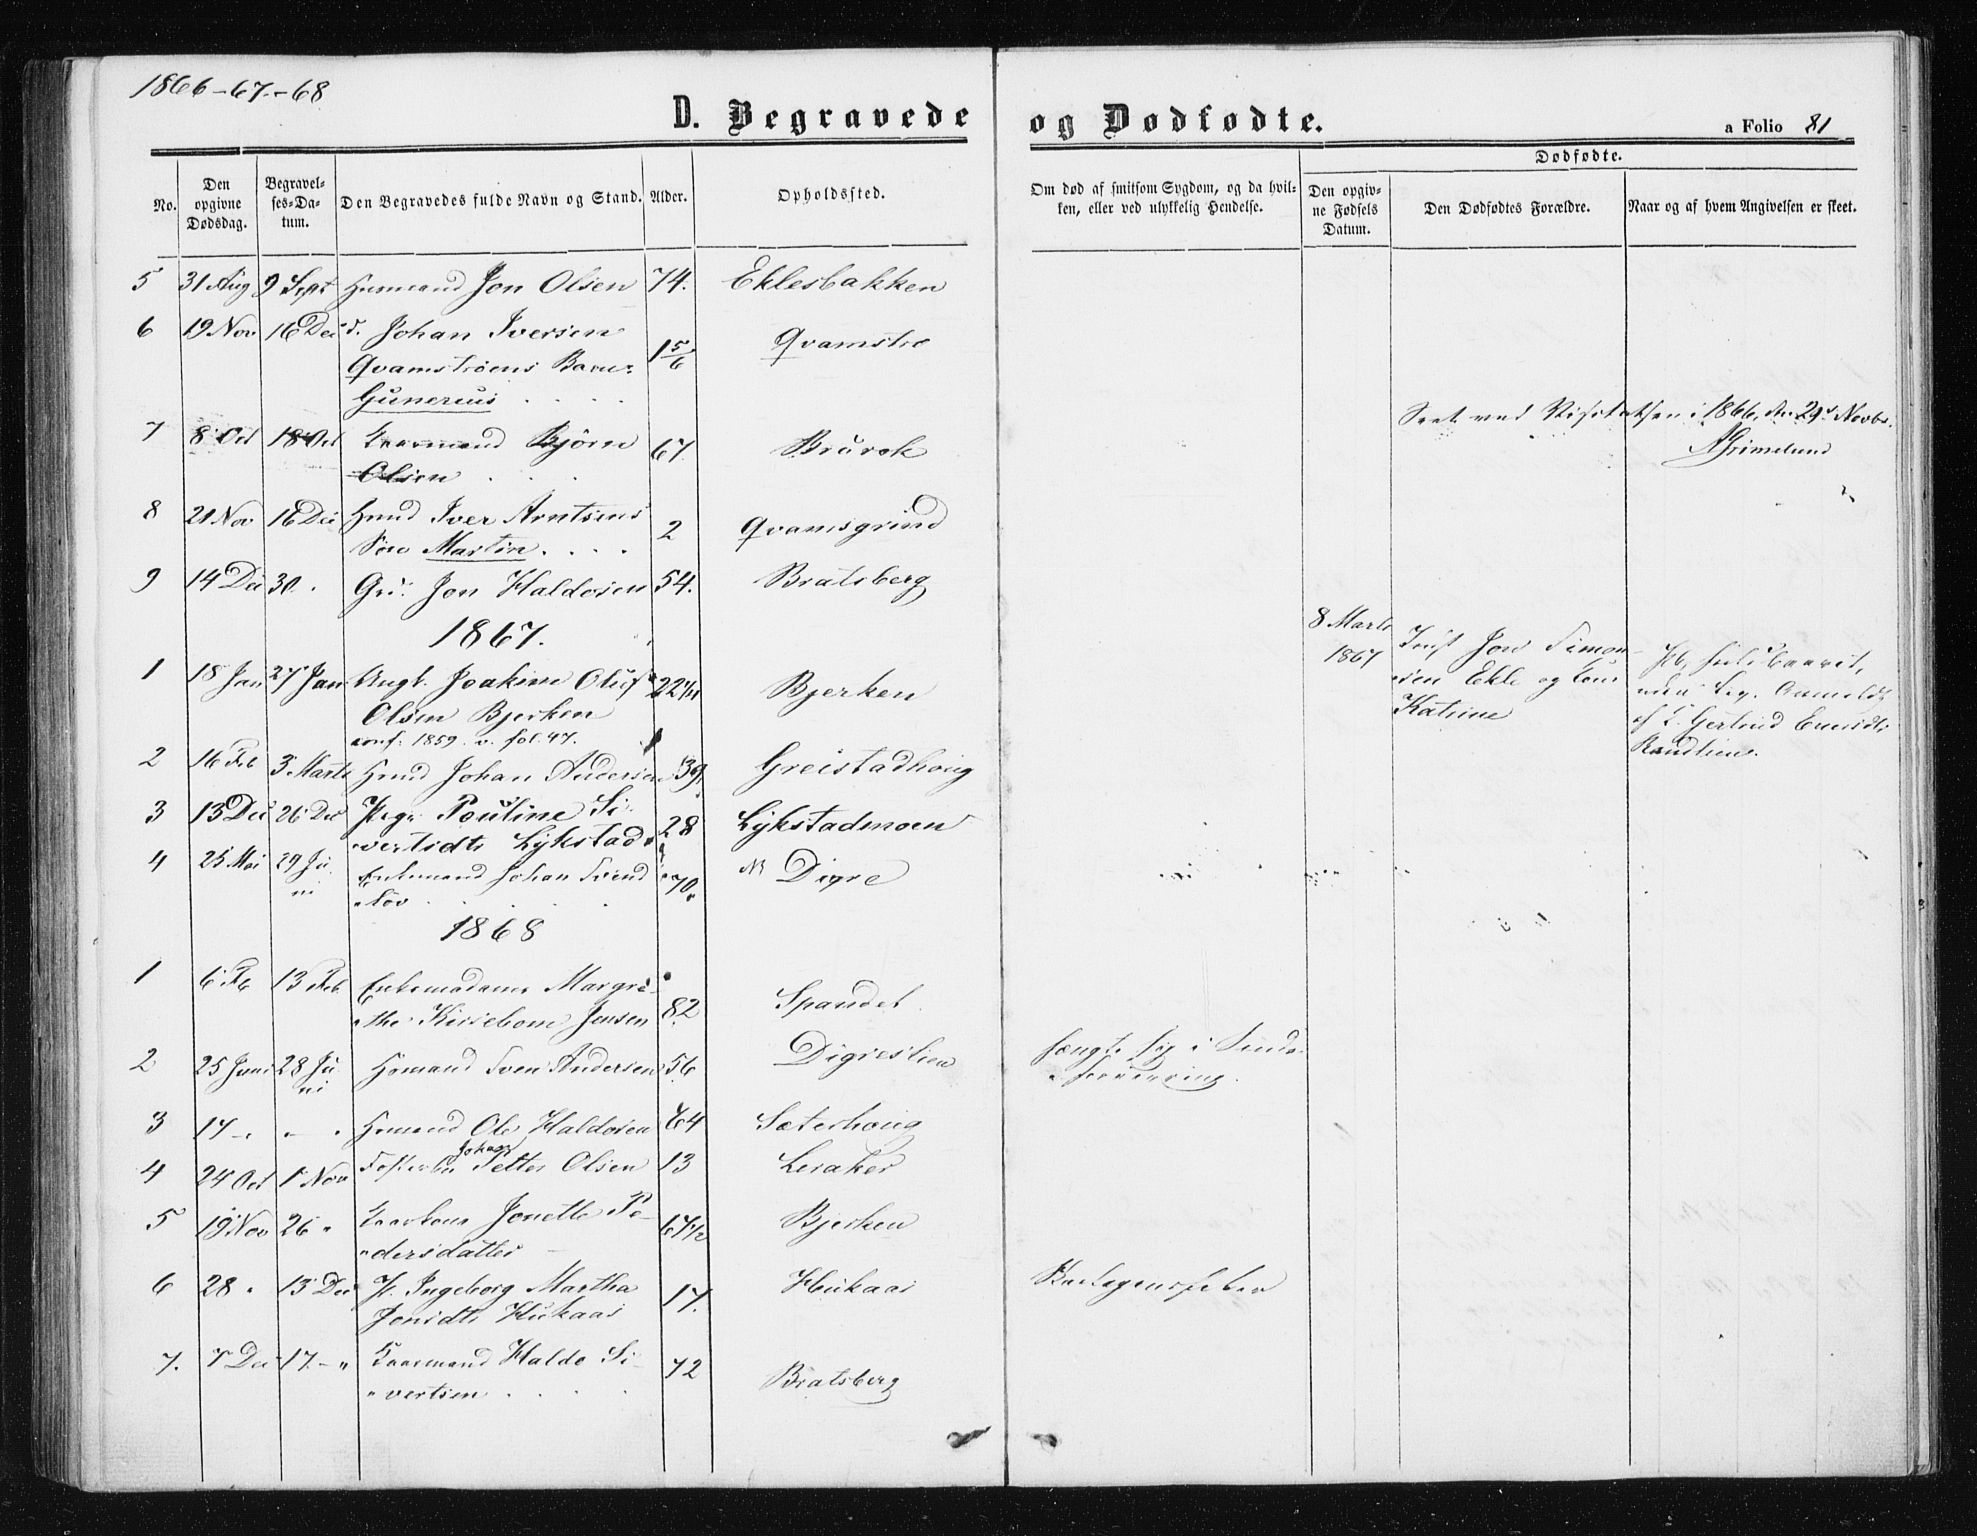 1866-67-68
D. Begravede og Dødfødte.
a Folio 81
Dødfødte.
No.
Den opgivne Dødsdag.
Begravelses-Datum.
Den Begravedes fulde Navn og Stand.
Alder.
Opholdssted.
Om død af smitsom Sygdom, og da hvilken, eller ved ulykkelig Hendelse.
Den opgivne Fødsels Datum.
Den Dødfødtes Forældre.
Naar og af hvem Angivelsen er skeet.
5 31 Aug 9 Sept Huusmand Jon Olsen 74. Eklesbakken
6 19 Nov 16 Dec d. Johan Iversen 1 5/6 Qvamstrø
Qvamstrøens Barn
Gunerius . . . .
Seet ved Visitatsen i 1866, den 29d Novbr.
AGrimelund
7 8 Oct 18 Oct Gaarmand Bjørn 67 Brurok
Olsen . . .
8 21 Nov 16 Dec Hmd Iver Arntsens 2 Qvamsgrind
Søn Martin . . . .
9 14 Dec 30 " Jon Haldosen 54. Bratsberg
1867.
1 18 Jan 27 Jan Ungk. Joakim Oluf 22 Bjerken
Olsen Bjerken
conf. 1859. v. fol. 47.
8 Marts 1867
Jon Simon-
sen Ekle og
Katrine
af Gertrud
2 16 Feb 3 Marts Hmd Johan Andersen 39, Greistadhoug
3 13 Dec 26 Dec Pige Pouline Si- 28 Lykstadmoen
vertsdt. Lykstad
4 25 Mai 29 Ju- Enkemand Johan Svend 70. Digre
ni
1868
1 6 Feb 13 Feb Enkemadame Margre- 82 Spandet
the Kirsebom Jensen
2 25 Juni 28 Ju- Hsmand Sven Andersen 56 Digreslien hængte sig i Sinds-
ni forvirring.
3 17 - " - " Hsmand Ole Haldosen 64 Sæterhoug
4 24 Oct 1 Nov Johan Petter Olsen 13 Leraker
5 19 Nov 26 " Jonette Pe- 67 1/2 Bjerken
dersdatter
6 28 " 13 Dec P. Ingeborg Martha 17. Hukaas
Jonsdt. Hukaas
7. 7 Dec 17. - " Gaarmand Haldo Si- 72 Bratsberg
vertsen . . . .